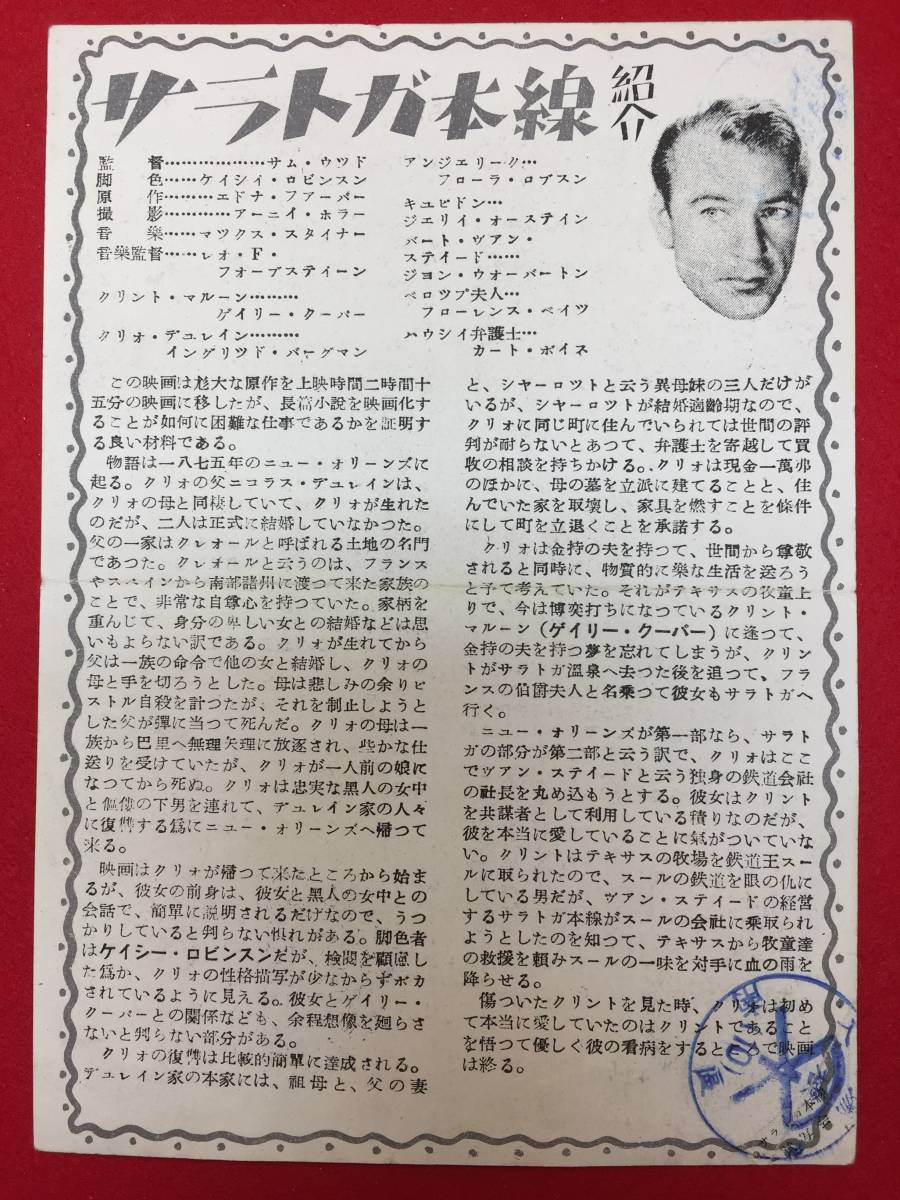 サラトガ本線 紹介
監督………………サム・ウツド
脚色……ケイシイ・ロビンスン
原作………エドナ・フアーバー
撮影…………アーニイ・ホラー
音樂……マツクス・スタイナー
音樂監督……レオ・F・
フオーブステイーン
クリント・マルーン………
ゲイリー・クーパー
クリオ・デュレイン………
イングリツド・バーグマン
アンジエリーク…
フローラ・ロブスン
キユピドン…
ジエリイ・オーステイン
バート・ヴアン・
ステイード……
ジヨン・ウオーバートン
ベロツプ夫人…
フローレンス・ベイツ
ハウシイ弁護士…
カート・ボイス
この映画は尨大な原作を上映時間二時間十
五分の映画に移したが、長篇小說を映画化す
ることが如何に困難な仕事であるかを証明す
る良い材料である。
物語は一八七五年のニュー・オリーンズに
起る。クリオの父ニコラス・デュレインは、
クリオの母と同棲していて、クリオが生れた
のだが、二人は正式に結婚していなかつた。
父の一家はクレオールと呼ばれる土地の名門
であつた。クレオールと云うのは、フランス
やスペインから南部諸州に渡つて来た家族の
ことで、非常な自尊心を持つていた。家柄を
重んじて、身分の卑しい女との結婚などは思
いもよらない訳である。クリオが生れてから
父は一族の命令で他の女と結婚し、クリオの
母と手を切ろうとした。母は悲しみの余りピ
ストル自殺を計つたが、それを制止しようと
した父が彈に当つて死んだ。クリオの母は一
族から巴里へ無理矢理に放逐され、些かな仕
送りを受けていたが、クリオが一人前の娘に
なつてから死ぬ。クリオは忠実な黒人の女中
と傴僂の下男を連れて、デュレイン家の人々
に復讐する爲にニュー・オリーンズへ帰つて
来る。
映画はクリオが帰つて来たところから始ま
るが、彼女の前身は、彼女と黒人の女中との
会話で、簡單に説明されるだけなので、うつ
かりしていると判らない惧れがある。脚色者
はケイシー・ロビンスンだが、檢閲を顧慮し
た爲か、クリオの性格描写が少なからずボカ
されているように見える。彼女とゲイリー・
クーパーとの関係なども、余程想像を廻らさ
ないと判らない部分がある。
クリオの復讐は比較的簡單に達成される。
デュレイン家の本家には、祖母と、父の妻
と、シヤーロツトと云う異母妹の三人だけが
いるが、シヤーロツトが結婚適齢期なので、
クリオに同じ町に住んでいられては世間の評
判が耐らないとあつて、弁護士を寄越して買
收の相談を持ちかける。クリオは現金一萬弗
のほかに、母の墓を立派に建てることと、住
んでいた家を取壞し、家具を燃すことを條件
にして町を立退くことを承諾する。
クリオは金持の夫を持つて、世間から尊敬
されると同時に、物質的に樂な生活を送ろう
と予て考えていた。それがテキサスの牧童上
りで、今は博奕打ちになつているクリント・
マルーン(ゲイリー・クーパー)に逢つて、
金持の夫を持つ夢を忘れてしまうが、クリン
トがサラトガ溫泉へ去つた後を追つて、フラ
ンスの伯爵夫人と名乗つて彼女もサラトガへ
行く。
ニュー・オリーンズが第一部なら、サラト
ガの部分が第二部と云う訳で、クリオはここ
でヴアン・ステイードと云う独身の鉄道会社
の社長を丸め込もうとする。彼女はクリント
を共謀者として利用している積りなのだが、
彼を本当に愛していることに氣がついていな
い。クリントはテキサスの牧場を鉄道王スー
ルに取られたので、スールの鉄道を眼の仇に
している男だが、ヴアン・ステイードの経営
するサラトガ本線がスールの会社に乗取られ
ようとしたのを知つて、テキサスから牧童達
の救援を頼みスールの一味を対手に血の雨を
降らせる。
傷ついたクリントを見た時、クリオは初め
て本当に愛していたのはクリントであること
を悟つて優しく彼の看病をするところで映画
は終る。